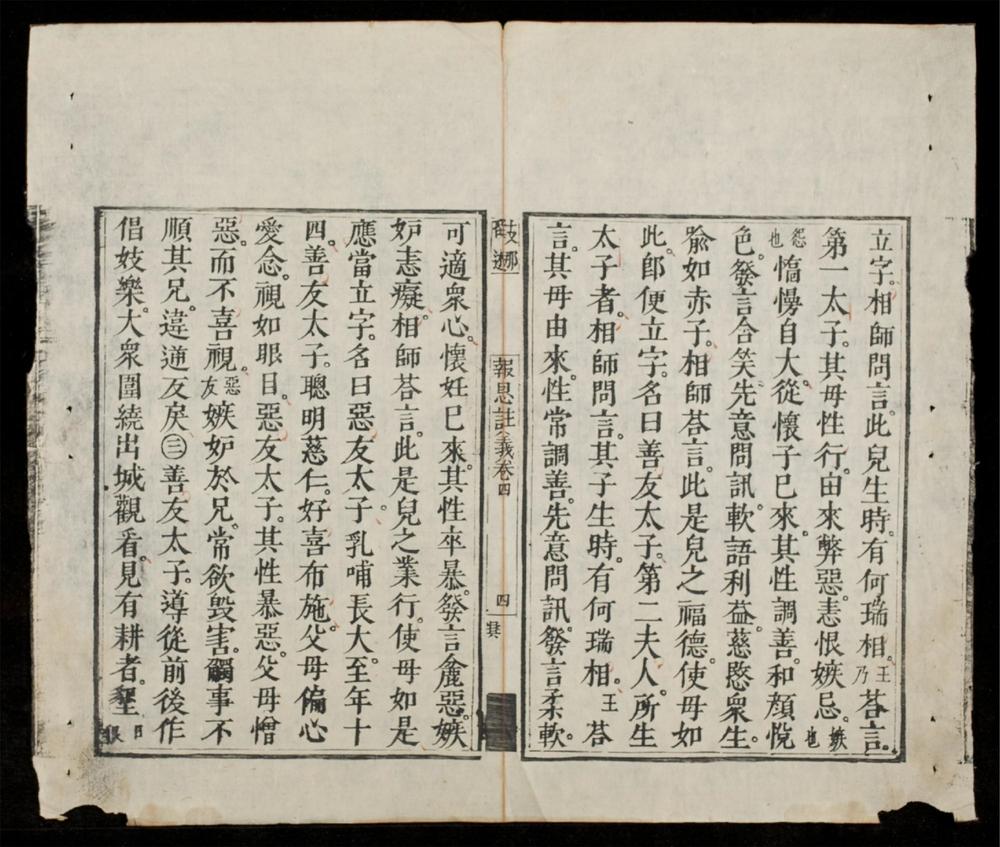 立字。相師問言。此兒生時。有何瑞相。王乃荅言。
第一太子。其母性行。由來弊惡。恚恨嫉忌。嫉也
怨也憍慢自大。從懷子已來。其性調善。和顏悅
色。發言含笑。先意問訊。軟語利益。慈愍衆生。
喻如赤子。相師荅言。此是兒之福德。使母如
此。卽便立字。名曰善友太子。第二夫人。所生
太子者。相師問言。其子生時。有何瑞相。王荅
言。其母由來。性常調善。先意問訊。發言柔軟。
報恩註義卷四
四
可適衆心。懷妊已來。其性卒暴。發言麄惡。嫉
妒恚癡。相師荅言。此是兒之業行。使母如是
應當立字。名曰惡友太子。乳哺長大。至年十
四。善友太子。聰明慈仁。好喜布施。父母偏心
愛念。視如眼目。惡友太子。其性暴惡。父母憎
惡。而不喜視。惡友嫉妒於兄。常欲毀害。觸事不
順其兄。違逆友戾㊂善友太子。導從前後。作
倡妓樂。大衆圍繞。出城觀看。見有耕者。墾